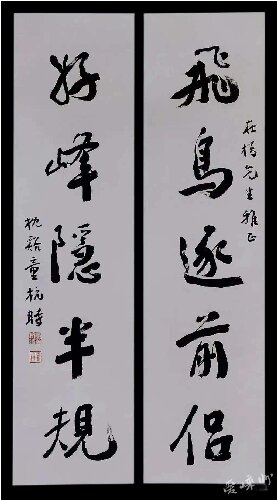 飛鳥逐前侶
莊橋先生雅正
好峰隱半規
枕谿童杭時